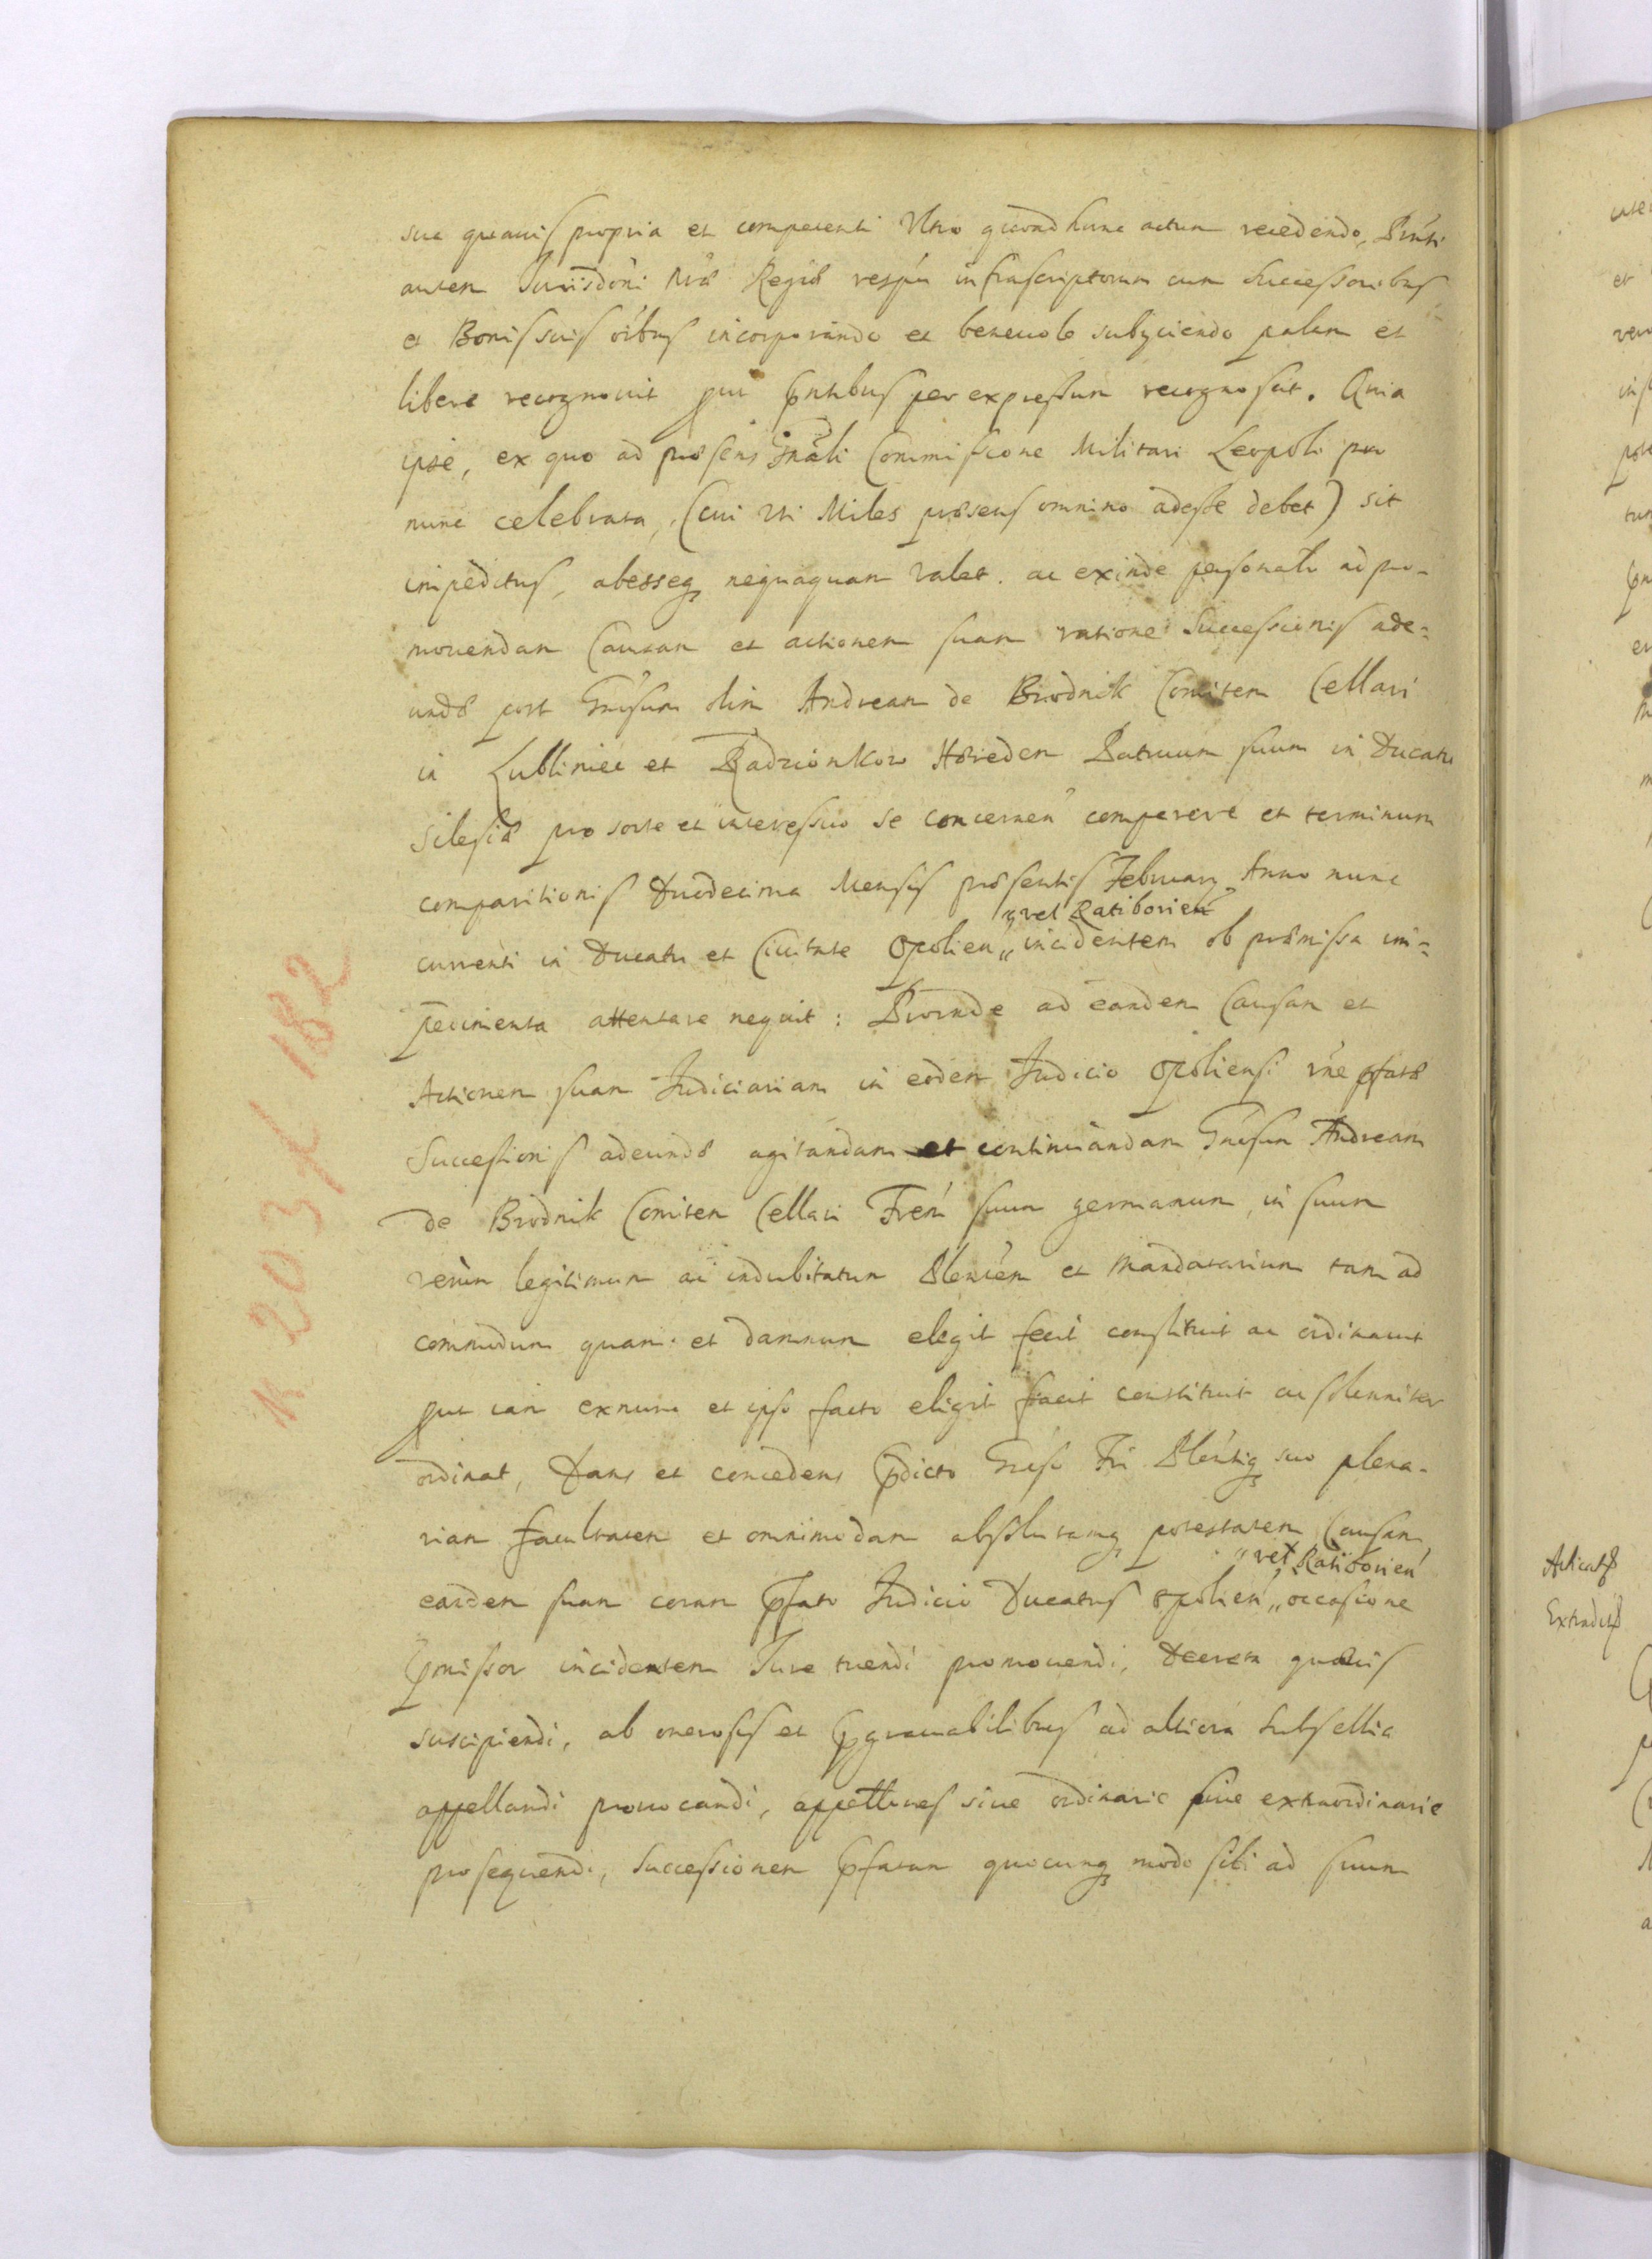 sua quavis propria et competenti Ultro quoad hunc actum recedendo, Pnti
autem Jurisdōni Nræ Regiæ respu infrascriptorum cum Successoribus
et Bonis suis oībus incorporando et benevole subyciendo palam et
libere recognovit put pntibus per expressum recognoscit. Quia
ipse, ex quo ad præsens Gnāli Commissione Militari Leopoli pro
nunc celebrata, (cui Uti Miles præsens omnino adesse debet) sit
impeditus, abesseq nequaquam valet. ac exinde personalr ad pro-
movendam Causam et actionem suam ratione Successionis ade=
undæ post Gnosum olim Andream de Brodnik Comitem Cellari
in Lubliniec et Radzionkow Hæredem Patruum suum in Ducatu
Silesiæ pro sorte et interessuo se concernen comperere et terminum
comparitionis Duodecima Mensis præsentis February Anno nunc
„vel Ratiborien
currenti in Ducatu et Civitate Opolien„ incidentem ob præmissa im=
pedimenta attentare nequit: Proinde ad eandem Causam et
Actionem suam Judiciariam in eodem Judicio Opoliensi rne pfatæ
Successionis adeundæ agitandam et continuandam Gnosum Andream
de Brodnik Comitem Cellari Frem suum germanum, in suum
verum legitimum ac indubitatum Plenten et Mandatarium tam ad
commodum quam et damnum elegit fecit constituit ac ordinavit
put iam exnunc et ipso facto eligit facit constituit ac solenniter
ordinat, Dans et concedens pdicto Gnoso Fri Plentiq suo plena-
riam facultatem et omnimodam absolutamq potestatem Causam
„vel Ratiborien
eandem suam coram pfato Judicio Ducatus Opolien„ occasione
pmissor incidentem Jure tuendi promovendi, Decreta quævis
suscipiendi, ab onerosis et pgravabilibus ad altiora Subsellia
appellandi provocandi, appellnes sive ordinarie sive extraordinarie
prosequendi, Successionem pfatam quocunq modo sibi ad suum
N 203 f 182